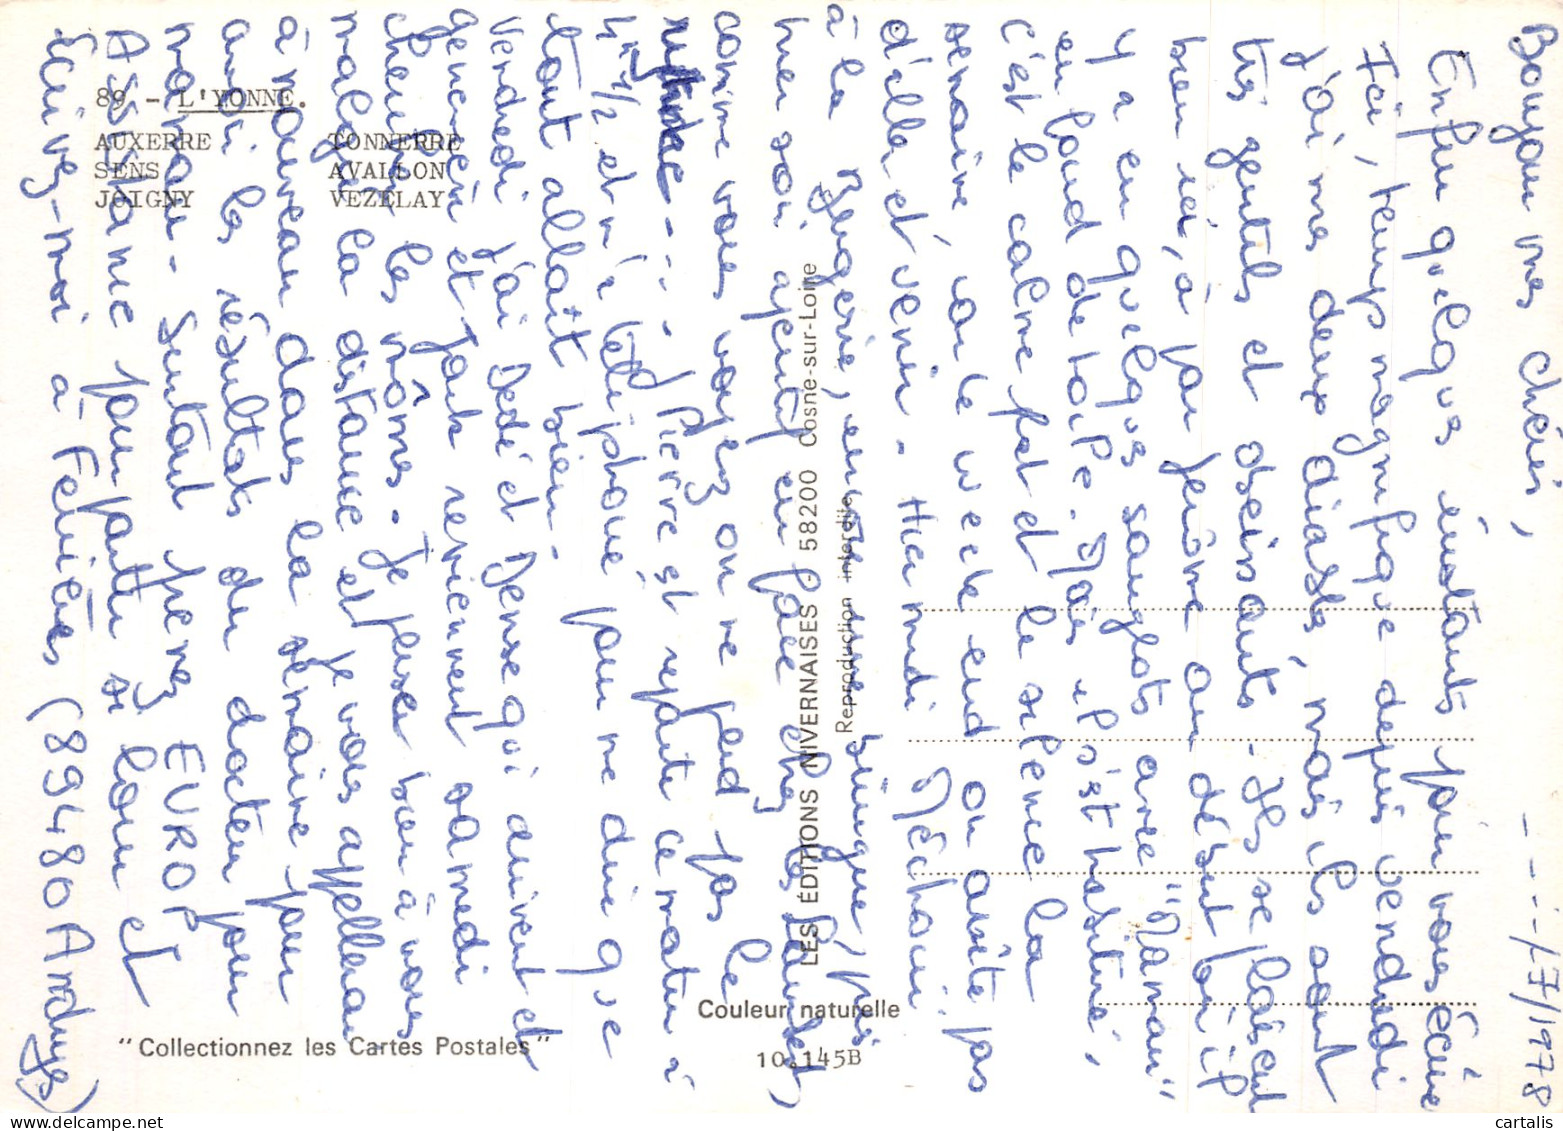 - - - /7/1978
Bonjour mes chéries,
Enfin quelques instants pour vous écrire
Ici, temps magnifique depuis vendredi
J'ai mes deux diables mais ils sont
très gentils et obéissants. Ils se plaisent
bien ici, à part Jérôme au début où il
y a eu quelques sanglots avec "Maman"
en fond de toile. Mais il s'est habitué,
c'est le calme plat et le silence la
semaine, car le week end on arrête pas
d'aller et venir. Hier midi Méchoui
à la Bergerie, encore une bringue, puis
hier soir apéritif en face chez les
comme vous voyez on ne perd pas le
- - - Pierre est reparti ce matin à
1/2 et m'a téléphoné pour me dire que
tout allait bien.
Vendredi j'ai Dédé et Denise qui arrivent et
Geneviève et Jack reviennent samedi
chercher les mômes. Je pense bien à vous
malgré la distance et je vous appellerai
à nouveau dans la semaine pour
avoir les résultats du docteur pour
maman. Surtout prenez EUROP
ASSISTANCE pour partir si loin et
écrivez-moi à Festières (89480 Andryes)
89 - L'YONNE.
AUXERRE TONNERRE
SENS AVALLON
JOIGNY VEZELAY
LES ÉDITIONS NIVERNAISES - 58200 Cosne-sur-Loire
Reproduction interdite
Couleur naturelle
"Collectionnez les Cartes Postales"
10.145B
cartalis